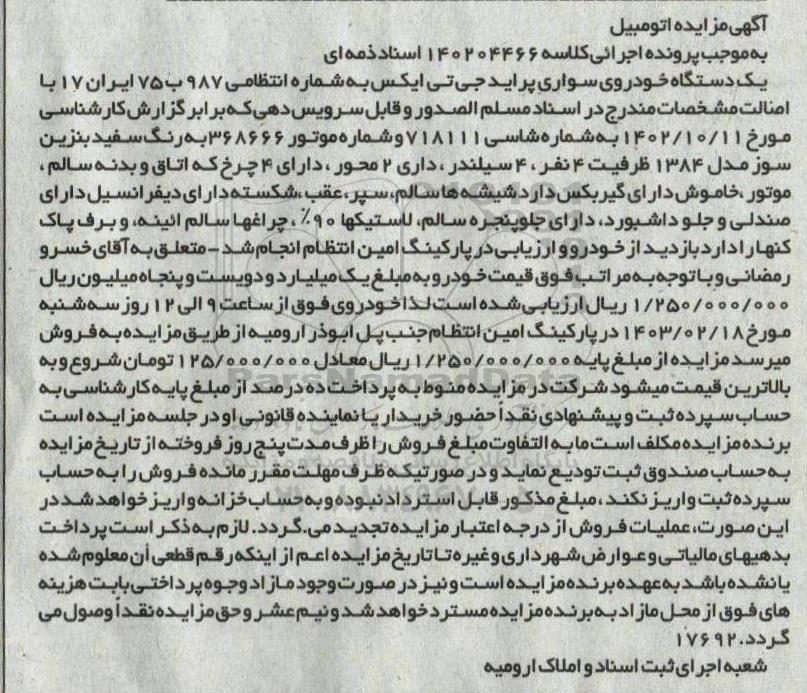 آگهی مزایده اتومبیل
به موجب پرونده اجرائی کلاسه ۱۴۰۲۰۴۴۶۶ اسناد ذمه ای
یک دستگاه خودروی سواری پراید جی تی ایکس به شماره انتظامی ۹۸۷ ب ۷۵ ایران ۱۷ با
اصالت مشخصات مندرج در اسناد مسلم الصدور و قابل سرویس دهی که برابر گزارش کارشناسی
مورخ ۱۴۰۲/۱۰/۱۱ به شماره شاسی ۷۱۸۱۱۱ و شماره موتور ۳۶۸۶۶۶ به رنگ سفید بنزین
سوز مدل ۱۳۸۴ ظرفیت ۴ نفر، ۴ سیلندر، داری ۲ محور، دارای ۴ چرخ که اتاق و بدنه سالم،
موتور، خاموش دارای گیربکس دارد شیشه ها سالم، سپر، عقب، شکسته دارای دیفرانسیل دارای
صندلی و جلو داشبورد، دارای جلو پنجره سالم، لاستیکها ۹۰٪، چراغها سالم ائینه، و برف پاک
کنها را دارد بازدید از خودرو و ارزیابی در پارکینگ امین انتظام انجام شد - متعلق به آقای خسرو
رمضانی و با توجه به مراتب فوق قیمت خودرو به مبلغ یک میلیارد و دویست و پنجاه میلیون ریال
۱/۲۵۰/۰۰۰/۰۰۰ ریال ارزیابی شده است لذا خودروی فوق از ساعت ۹ الی ۱۲ روز سه شنبه
مورخ ۱۴۰۳/۰۲/۱۸ در پارکینگ امین انتظام جنب پل ابوذر ارومیه از طریق مزایده به فروش
میرسد مزایده از مبلغ پایه ۱/۲۵۰/۰۰۰/۰۰۰ ریال معادل ۱۲۵/۰۰۰/۰۰۰ تومان شروع و به
بالاترین قیمت میشود شرکت در مزایده منوط به پرداخت ده درصد از مبلغ پایه کارشناسی به
حساب سپرده ثبت و پیشنهادی نقداً حضور خریدار یا نماینده قانونی او در جلسه مزایده است
برنده مزایده مکلف است مابه التفاوت مبلغ فروش را ظرف مدت پنج روز فروخته از تاریخ مزایده
به حساب صندوق ثبت تودیع نماید و در صورتیکه ظرف مهلت مقرر مانده فروش را به حساب
سپرده ثبت واریز نکند، مبلغ مذکور قابل استرداد نبوده و به حساب خزانه واریز خواهد شد در
این صورت، عملیات فروش از درجه اعتبار مزایده تجدید می.گردد. لازم به ذکر است پرداخت
بدهیهای مالیاتی و عوارض شهرداری و غیره تا تاریخ مزایده اعم از اینکه رقم قطعی آن معلوم شده
یا نشده باشد به عهده برنده مزایده است و نیز در صورت وجود مازاد وجوه پرداختی بابت هزینه
های فوق از محل مازاد به برنده مزایده مسترد خواهد شد و نیم عشر و حق مزایده نقداً وصول می
گردد. ۱۷۶۹۲
شعبه اجرای ثبت اسناد و املاک ارومیه
ParsNamadData